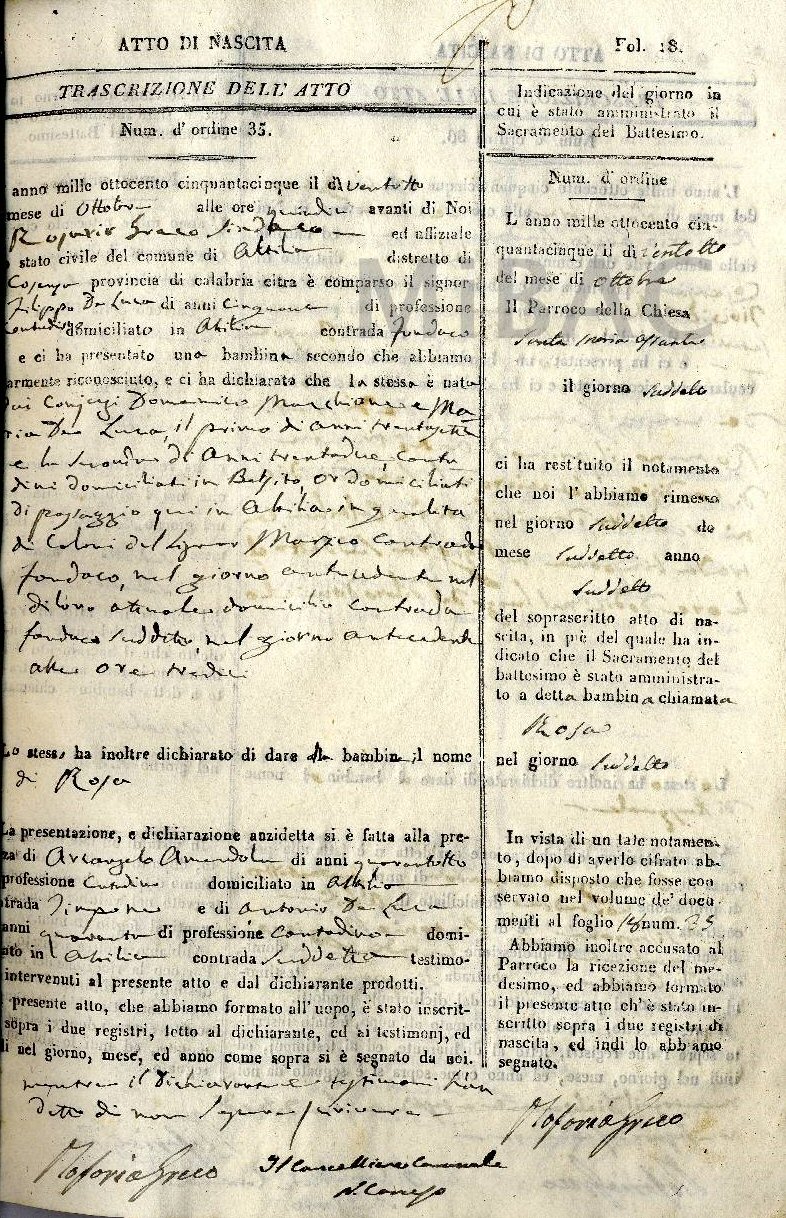 ATTO DI NASCITA
TRASCRIZIONE DELL' ATTO
Num. d' ordine 35.
anno mille ottocento cinquantacinque il dì ventotto
mese di Ottobre alle ore quindici avanti di Noi
Rosario Greco Sindaco ed uffiziale
stato civile del comune di Altilia distretto di
Cosenza provincia di calabria citra è comparso il signor
Filippo De Luca di anni cinquanta di professione
Contadino domiciliato in Altilia contrada fondaco
e ci ha presentato una bambina secondo che abbiamo
armente riconosciuto, e ci ha dichiarato che la stessa è nata
dai Conjugi Domenico Marchione e Ma
ria De Luca, il primo di anni trentasette
e la seconda di Anni trentadue, Conta
dini domiciliati in Belsito, or domiciliati
di passaggio qui in Altilia in qualità
di Coloni del Signor Contrada
fondaco, nel giorno antecedente nel
di loro attuale domicilio contrada
fondaco suddetto, nel giorno antecedente
alle ore tredici
Lo stesso ha inoltre dichiarato di dare alla bambina il nome
di Rosa
La presentazione, e dichiarazione anzidetta si è fatta alla pre-
za di Arcangelo Amendola di anni quarantotto
professione Contadino domiciliato in Altilia
trada Timpone e di Antonio De Luca
anni quaranta di professione Contadino domi-
ato in Altilia contrada Suddetta testimo-
intervenuti al presente atto e dal dichiarante prodotti.
presente atto, che abbiamo formato all'uopo, è stato inscrit-
sopra i due registri, letto al dichiarante, ed ai testimonj, ed
di nel giorno, mese, ed anno come sopra si è segnato da noi.
mentre il Dichiarante e testimoni han
detto di non sapere scrivere
Rosario Greco
Il Cancelliere Comunale
Fol. 18.
Indicazione del giorno in
cui è stato amministrato il
Sacramento del Battesimo.
Num. d' ordine
L' anno mille ottocento cin-
quantacinque il dì ventotto
del mese di ottobre
Il Parroco della Chiesa
Santa Maria Assunta
il giorno suddetto
ci ha restituito il notamento
che noi l' abbiamo rimesso
nel giorno suddetto de
mese suddetto anno
suddetto
del soprascritto atto di na-
scita, in piè del quale ha in-
dicato che il Sacramento del
battesimo è stato amministra-
to a detta bambina chiamata
Rosa
nel giorno suddetto
In vista di un tale notamen-
to, dopo di averlo cifrato ab-
biamo disposto che fosse con
servato nel volume de' docu-
menti al foglio 18 num. 35
Abbiamo inoltre accusato al
Parroco la ricezione del me-
desimo, ed abbiamo formato
il presente atto ch' è stato in-
scritto sopra i due registri di
nascita, ed indi lo abbiamo
segnato.
Rosario Greco
MiBAC